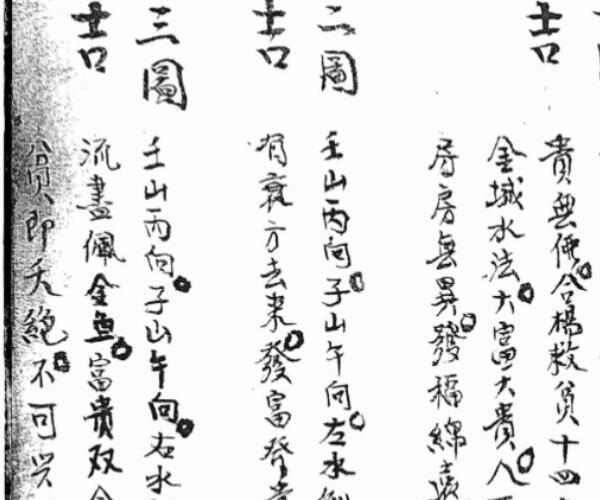 吉
貴無価合楊救貧十四
金城水法大富大貴人
房房無異發福綿遠
二圖
壬山丙向子山午向左水倒
吉
有衰方去来發富發貴
三圖
壬山丙向子山午向右水
吉
流盡佩金魚富貴双全
貧即夭絕不可兴